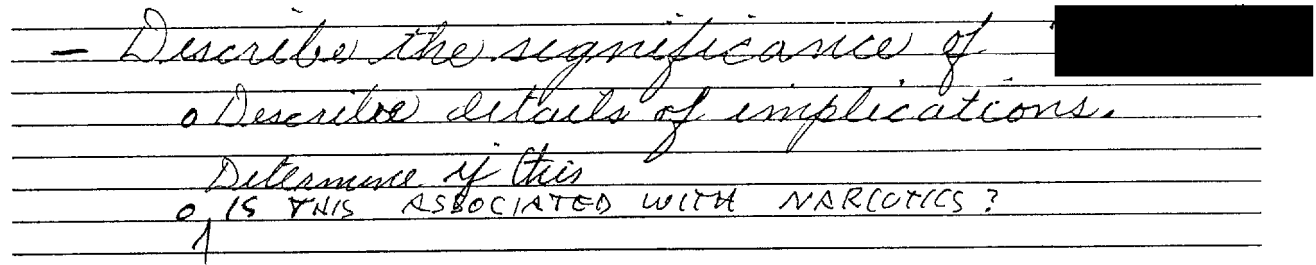 - Describe the significance of "
o Describe details of implications.
Determine if this
o IS THIS ASSOCIATED WITH NARCOTICS?